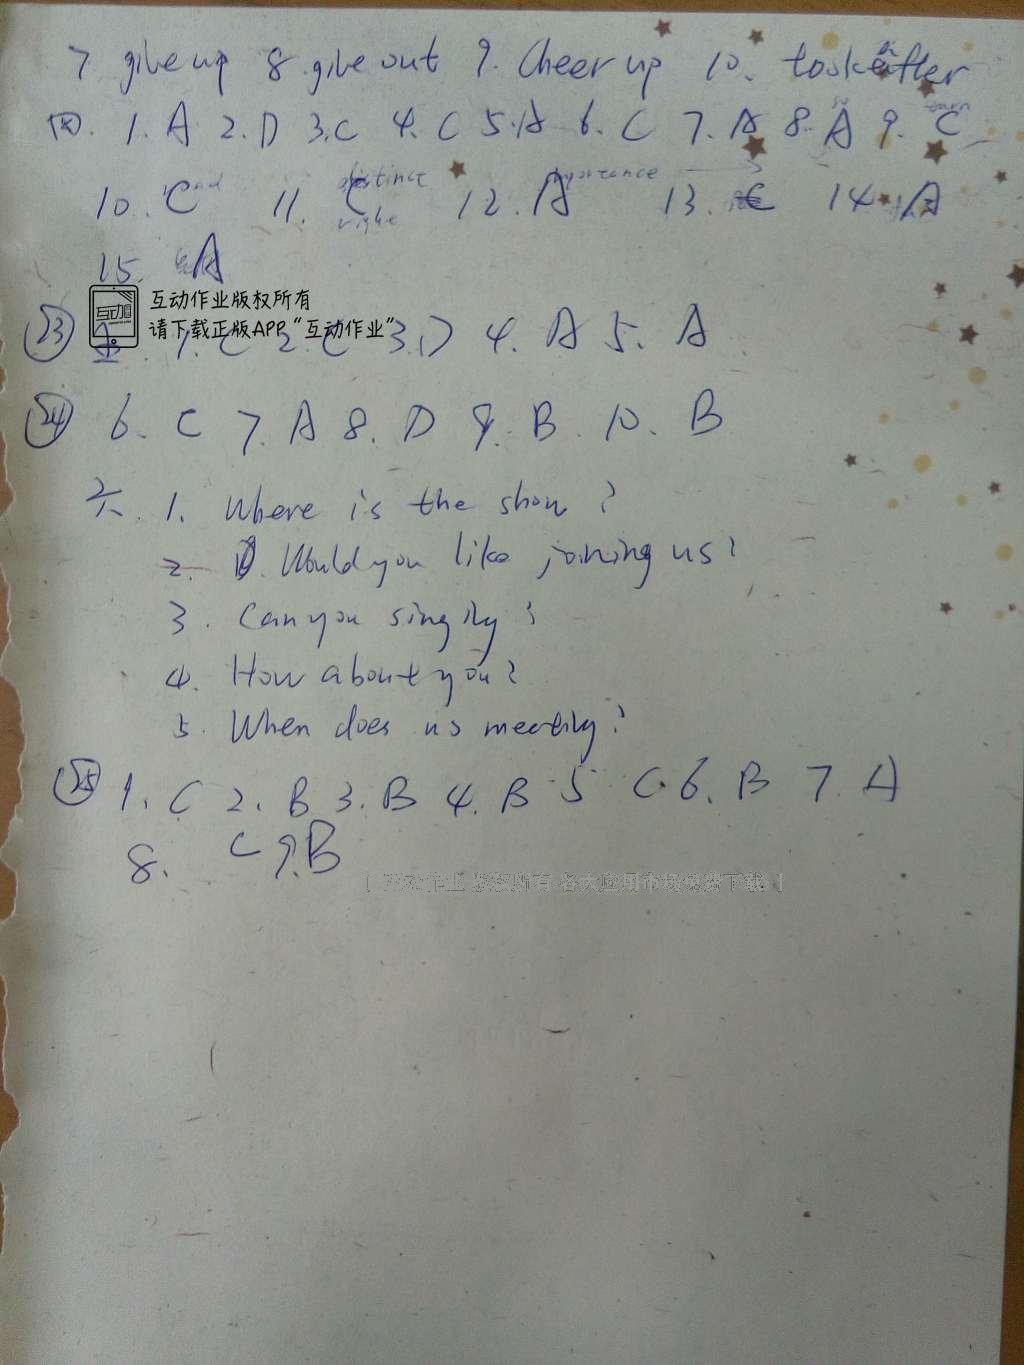 7 give up 8. give out 9. Cheer up 10. took after
四. 1. A 2. D 3. C 4. C 5. A 6. C 7. A 8. A 9. C
10. C 11. C 12. A 13. C 14. A
15. A
互动作业版权所有
请下载正版APP“互动作业”
23 五. 1. C 2. C 3. D 4. A 5. A
24 6. C 7. A 8. D 9. B 10. B
六 1. Where is the show?
2. Would you like joining us?
3. Can you sing
4. How about you?
5. When does us meeting?
25 1. C 2. B 3. B 4. B 5 C 6. B 7. A
8. C 9. B
[ 互动作业 版权所有 各大应用市场免费下载 ]